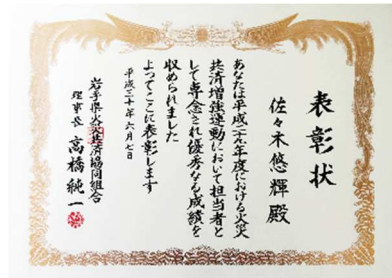 表彰状
佐々木悠輝殿
あなたは平成二九年度における火災
共済増強運動において担当者と
して専念され優秀なる成績を
収められました
よってここに表彰します
平成三十年六月七日
岩手県火災共済協同組合
理事長 高橋純一